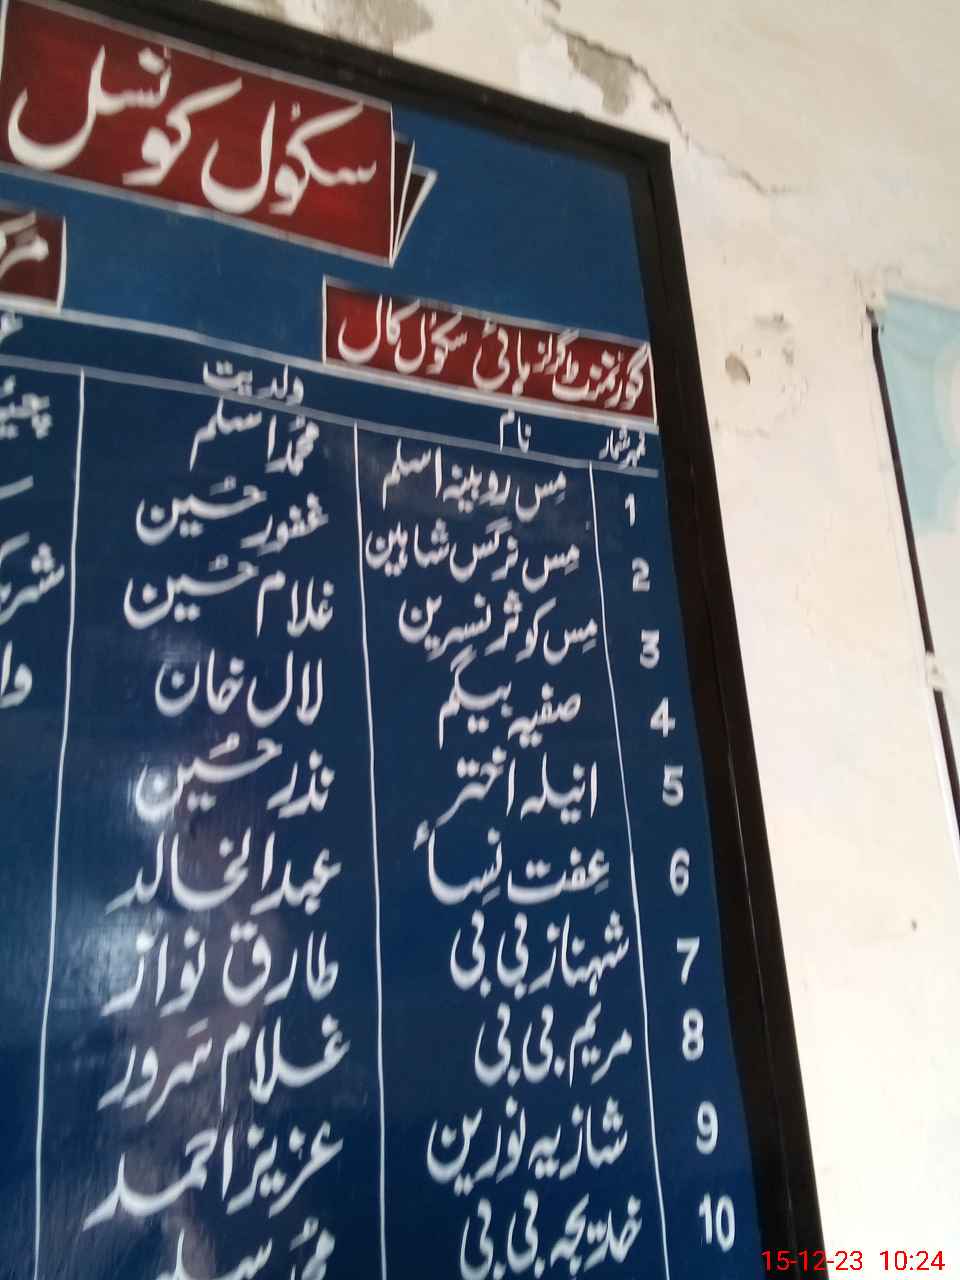 سکول کونسل
گورنمنٹ گرلز ہائی سکول کال
نمبر شمار نام ولدیت
1 مس روبینہ اسلم محمد اسلم
2 مس نرگس شاہین غفور حسین
3 مس کوثر نسرین غلام حسین
4 صفیہ بیگم لال خان
5 انیلہ اختر نذر حسین
6 عفت نساء عبدالخالد
7 شہناز بی بی طارق نواز
8 مریم بی بی غلام سرور
9 شازیہ نورین عزیز احمد
10 خدیجہ بی بی محمد
15-12-23 10:24